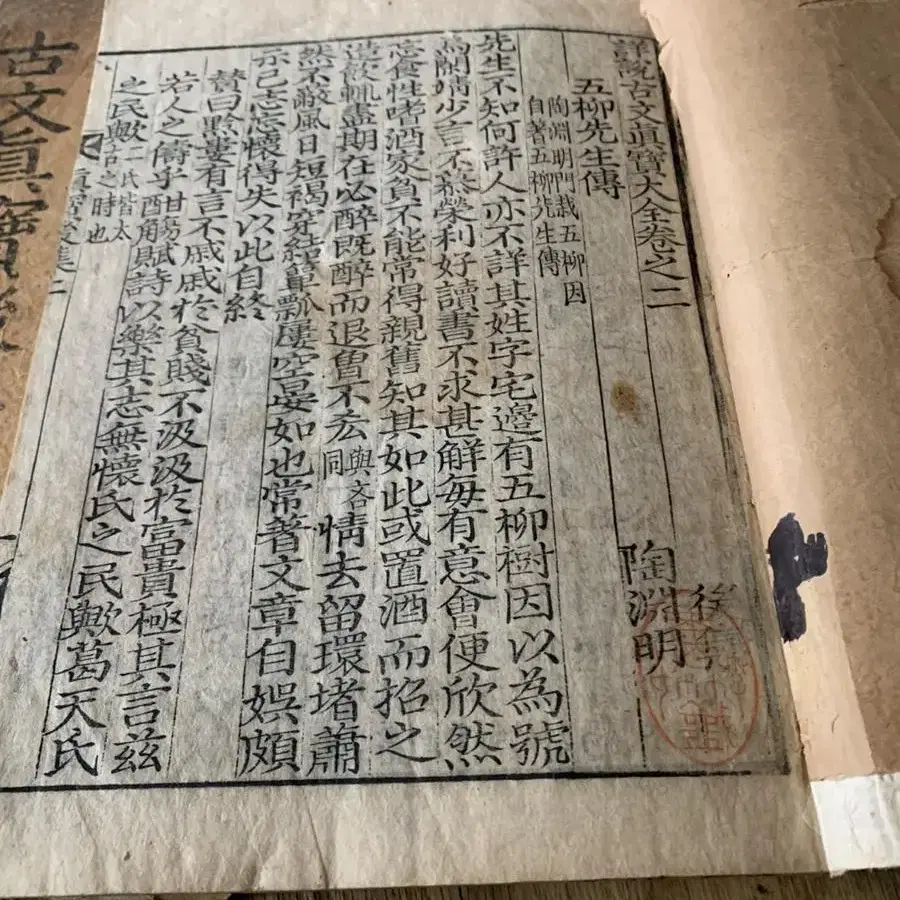 詳說古文眞寶大全卷之二
後集
五柳先生傳 陶淵明
陶淵明門栽五柳因
自著五柳先生傳
先生不知何許人亦不詳其姓字宅邊有五柳樹因以為號
焉閑靖少言不慕榮利好讀書不求甚解每有意會便欣然
忘食性嗜酒家貧不能常得親舊知其如此或置酒而招之
造飮輒盡期在必醉既醉而退曾不 與吝同 情去留環堵蕭
然不蔽風日短褐穿結簞瓢屢空晏如也常著文章自娛頗
示己志忘懷得失以此自終
贊曰黔婁有言不戚戚於貧賤不汲汲於富貴極其言茲
若人之儔乎酣觴賦詩以樂其志無懷氏之民歟葛天氏
之民歟 二氏皆太古之時也
眞寶後集 二
古文眞寶後